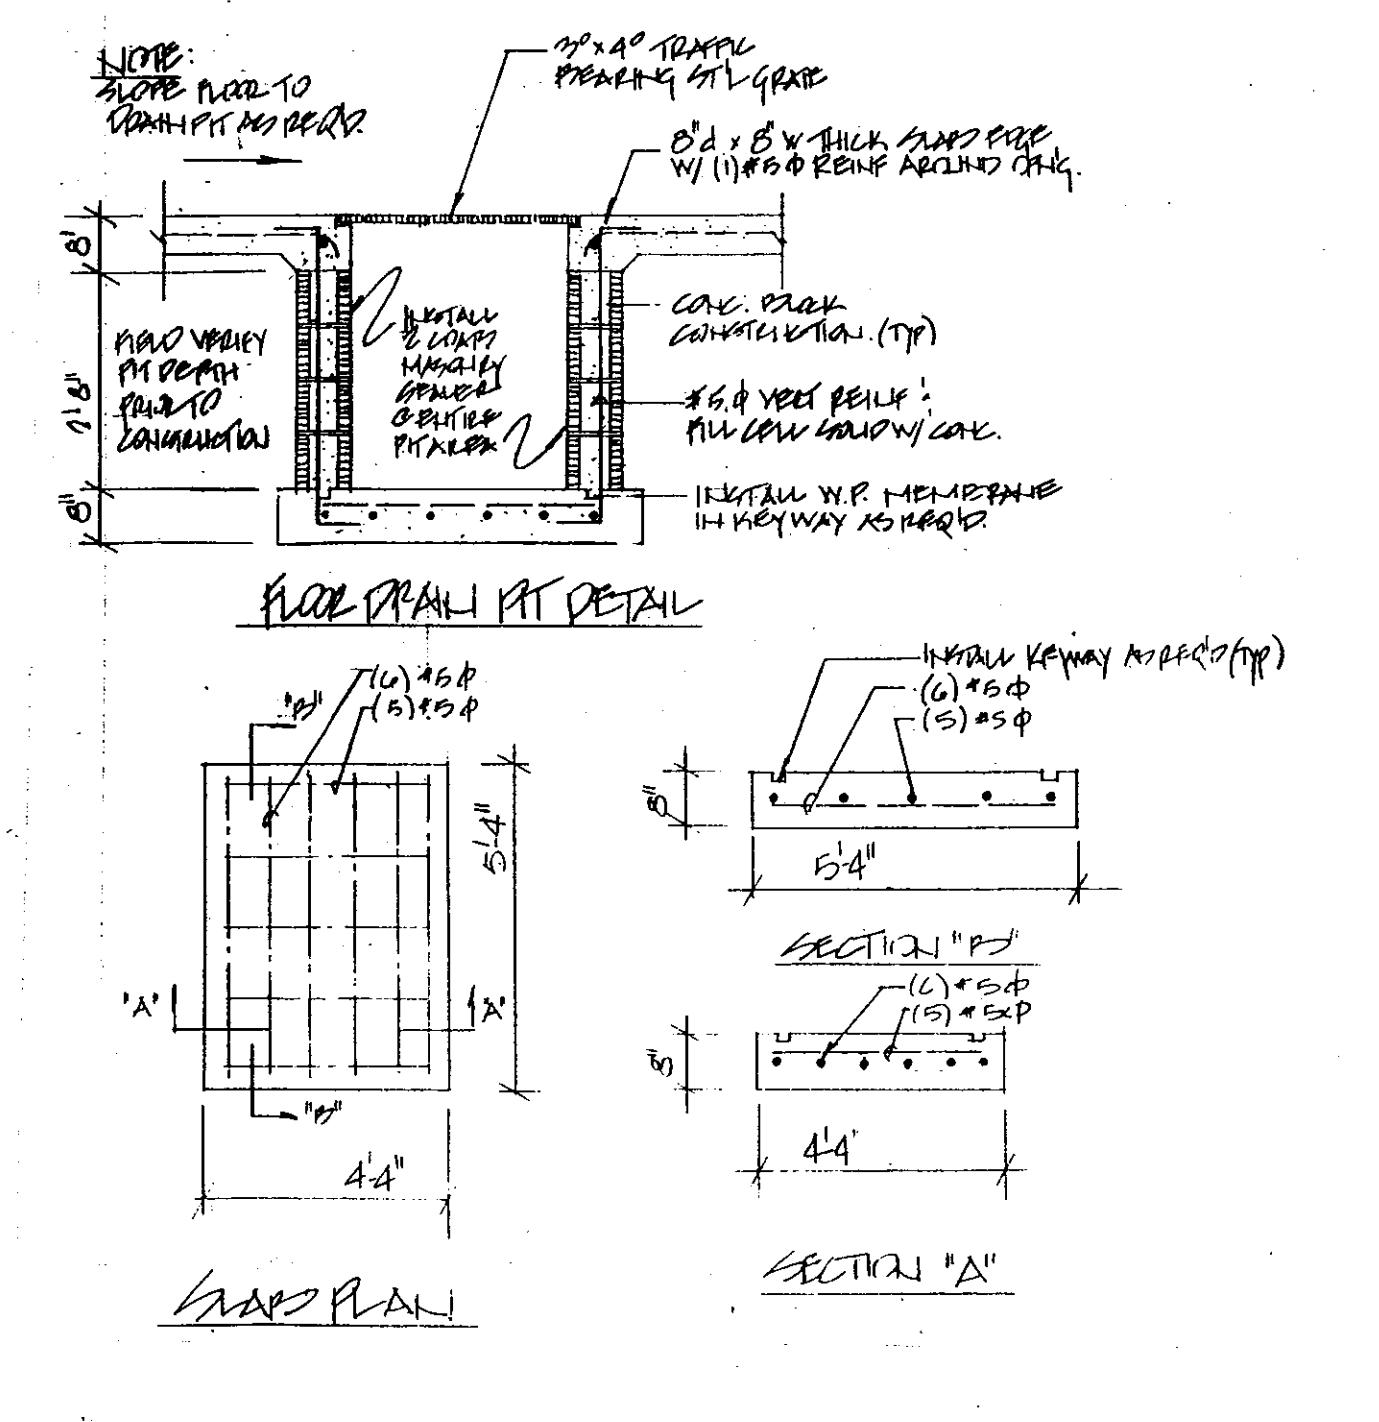 NOTE:
SLOPE FLOOR TO
DRAIN PIT AS REQ'D.
3⁰ x 4⁰ TRAFFIC
BEARING ST'L GRATE
8"d x 8"W THICK SLAB EDGE
W/ (1) #5 Φ REINF AROUND OP'N'G.
8"
FIELD VERIFY
PIT DEPTH
PRIOR TO
CONSTRUCTION
INSTALL
2 COATS
MASONRY
SEALER
@ ENTIRE
PIT AREA
CONC. BLOCK
CONSTRUCTION. (TYP)
#5 Φ VERT REINF
FILL CELL SOLID W/ CONC.
8"
INSTALL W.P. MEMBRANE
IN KEYWAY AS REQ'D.
FLOOR DRAIN PIT DETAIL
(6) #5 Φ
(5) #5 Φ
"B"
5'-4"
"A"
"A"
"B"
4'-4"
SLAB PLAN
INSTALL KEYWAY AS REQ'D (TYP)
(6) #5 Φ
(5) #5 Φ
8"
5'-4"
SECTION "B"
(6) #5 Φ
(5) #5 Φ
8"
4'-4"
SECTION "A"